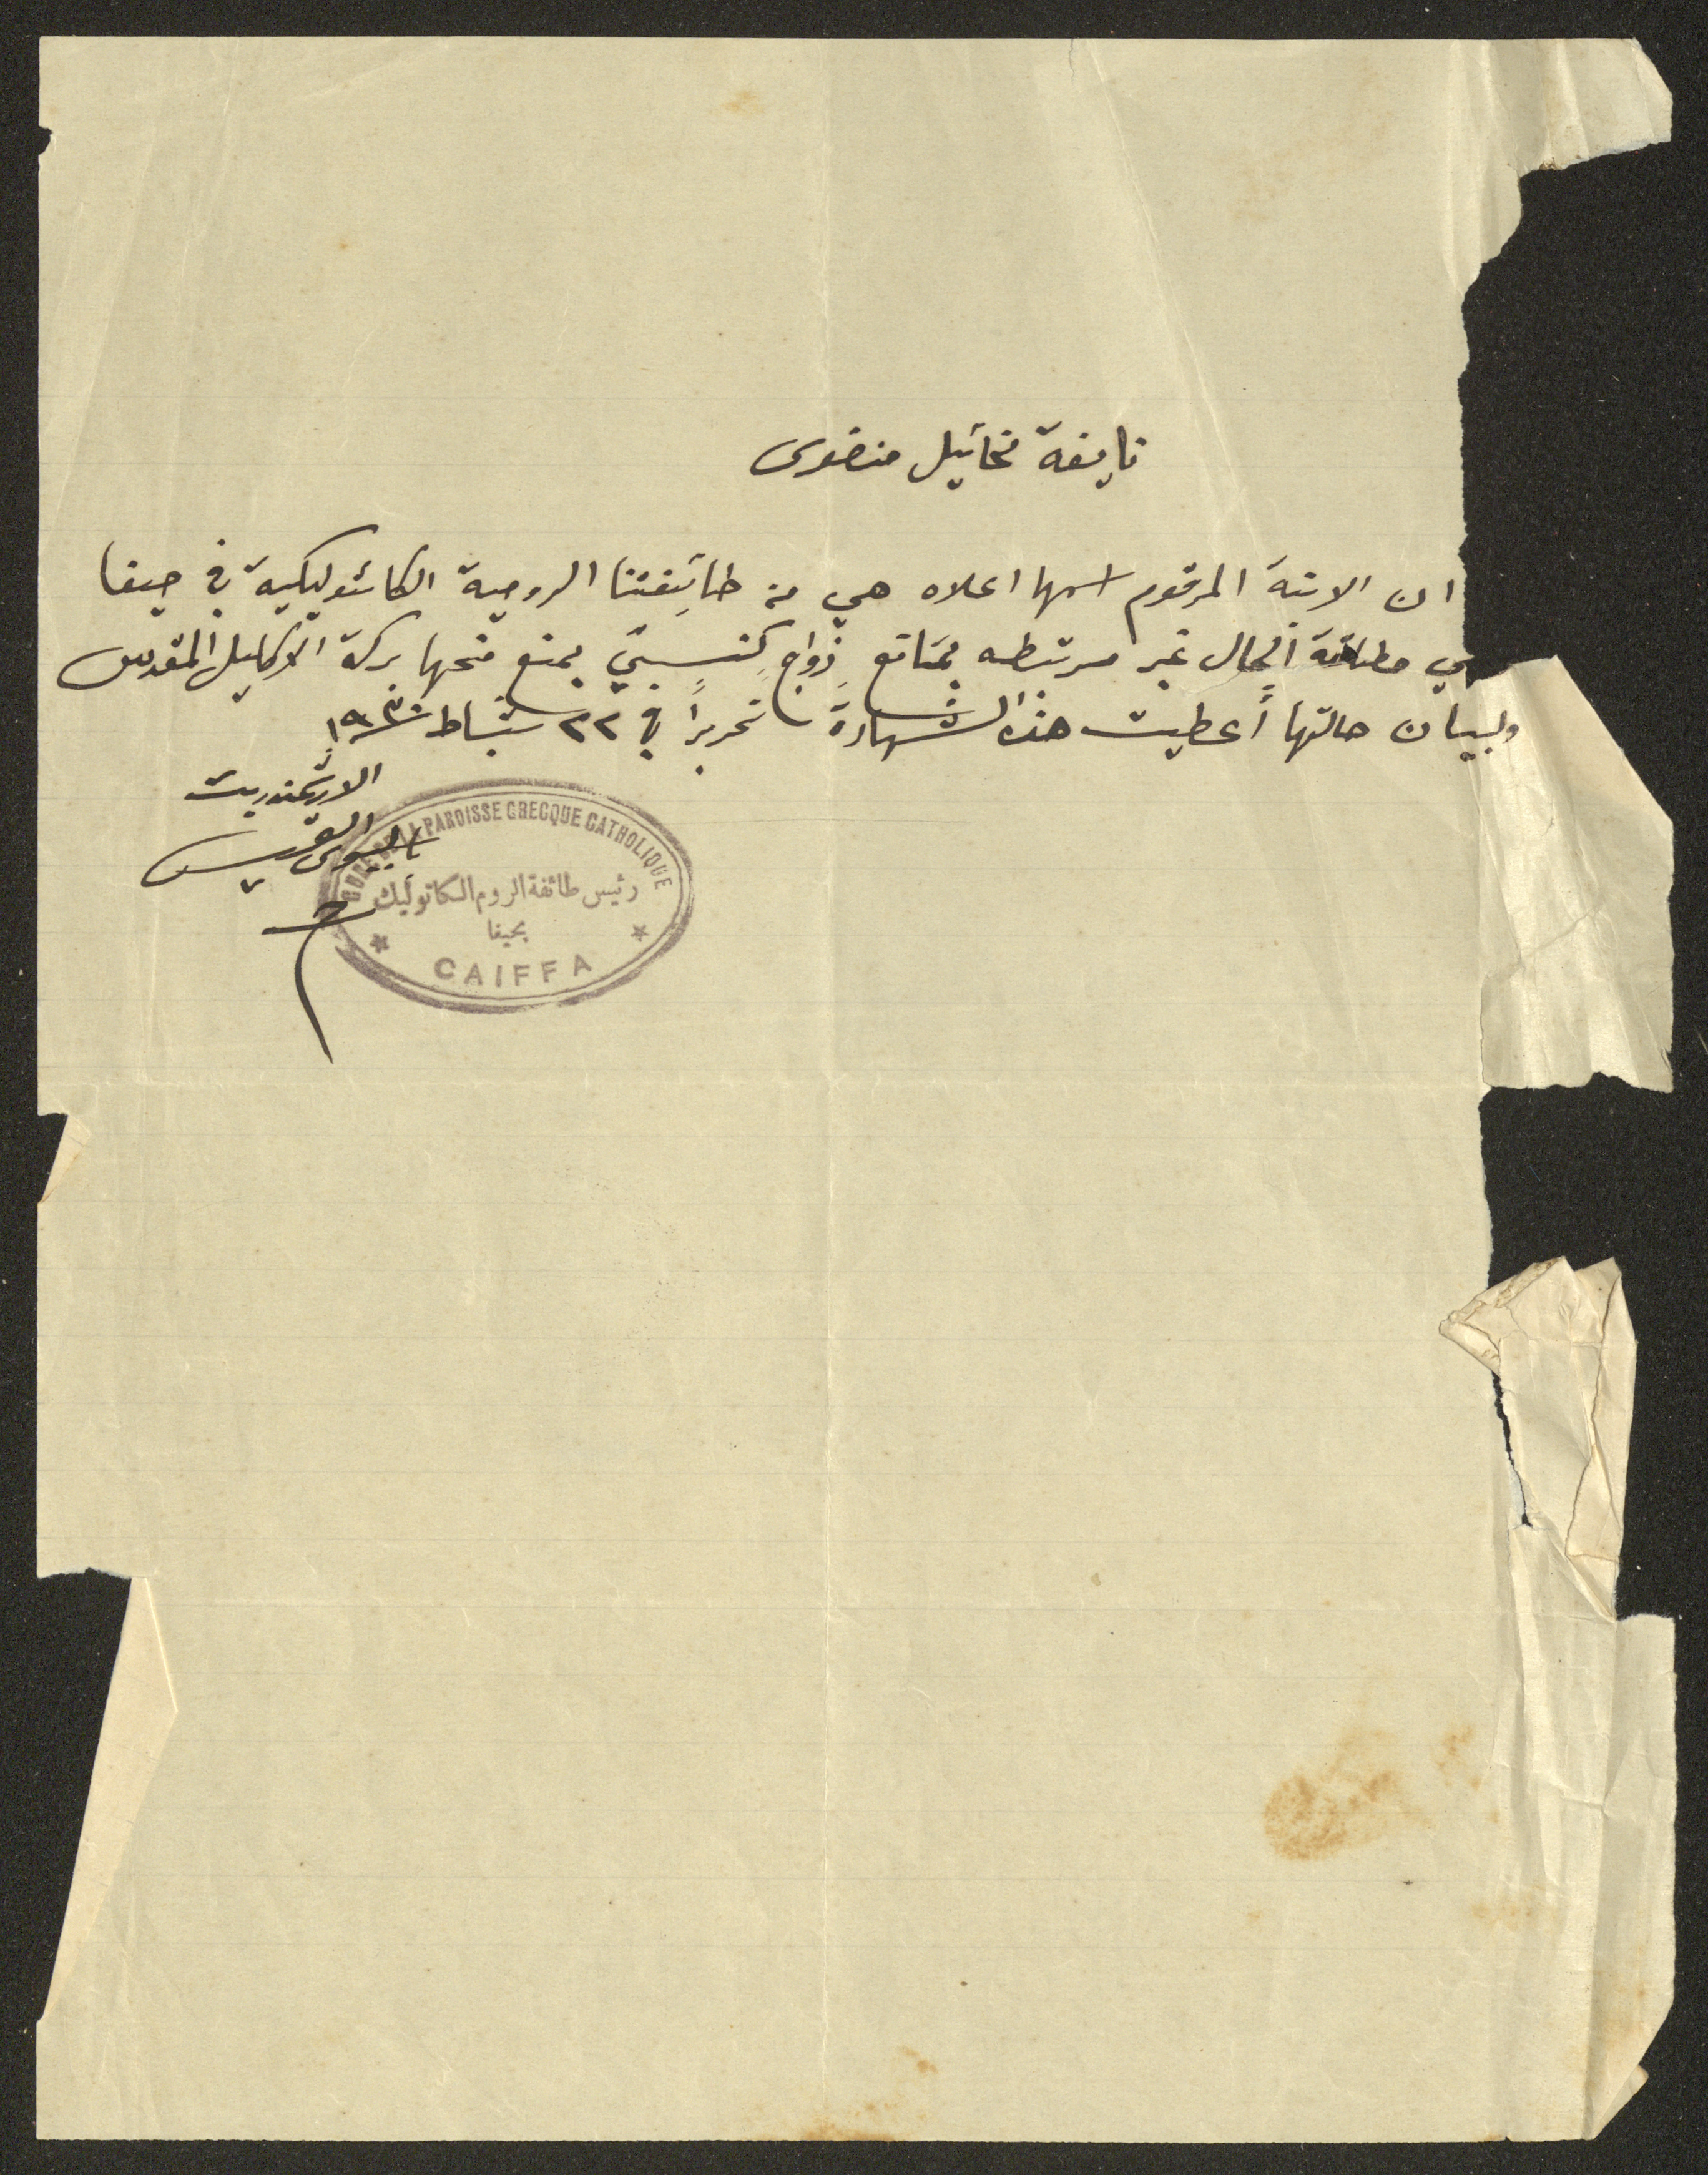 نايفة مخائيل منضوى
ان الابنة المرقوم اسمها اعلاه هي من طائفتنا الرومية الكاثوليكية في حيفا
وهي مطلقة الحال غير مرتبطه بمانع زواج كنسيّ يمنع منحها بركة الاكليل المقدس
ولبيان حالتها أعطيت هذه الشهادة تحريراً في ٢٢ شباط ١٩٣٠
الارشمندريت
باسيليوس
PAROISSE GRECQUE CATHOLIQUE
رئيس طائفة الروم الكاثوليك
بحيفا
CAIFFA